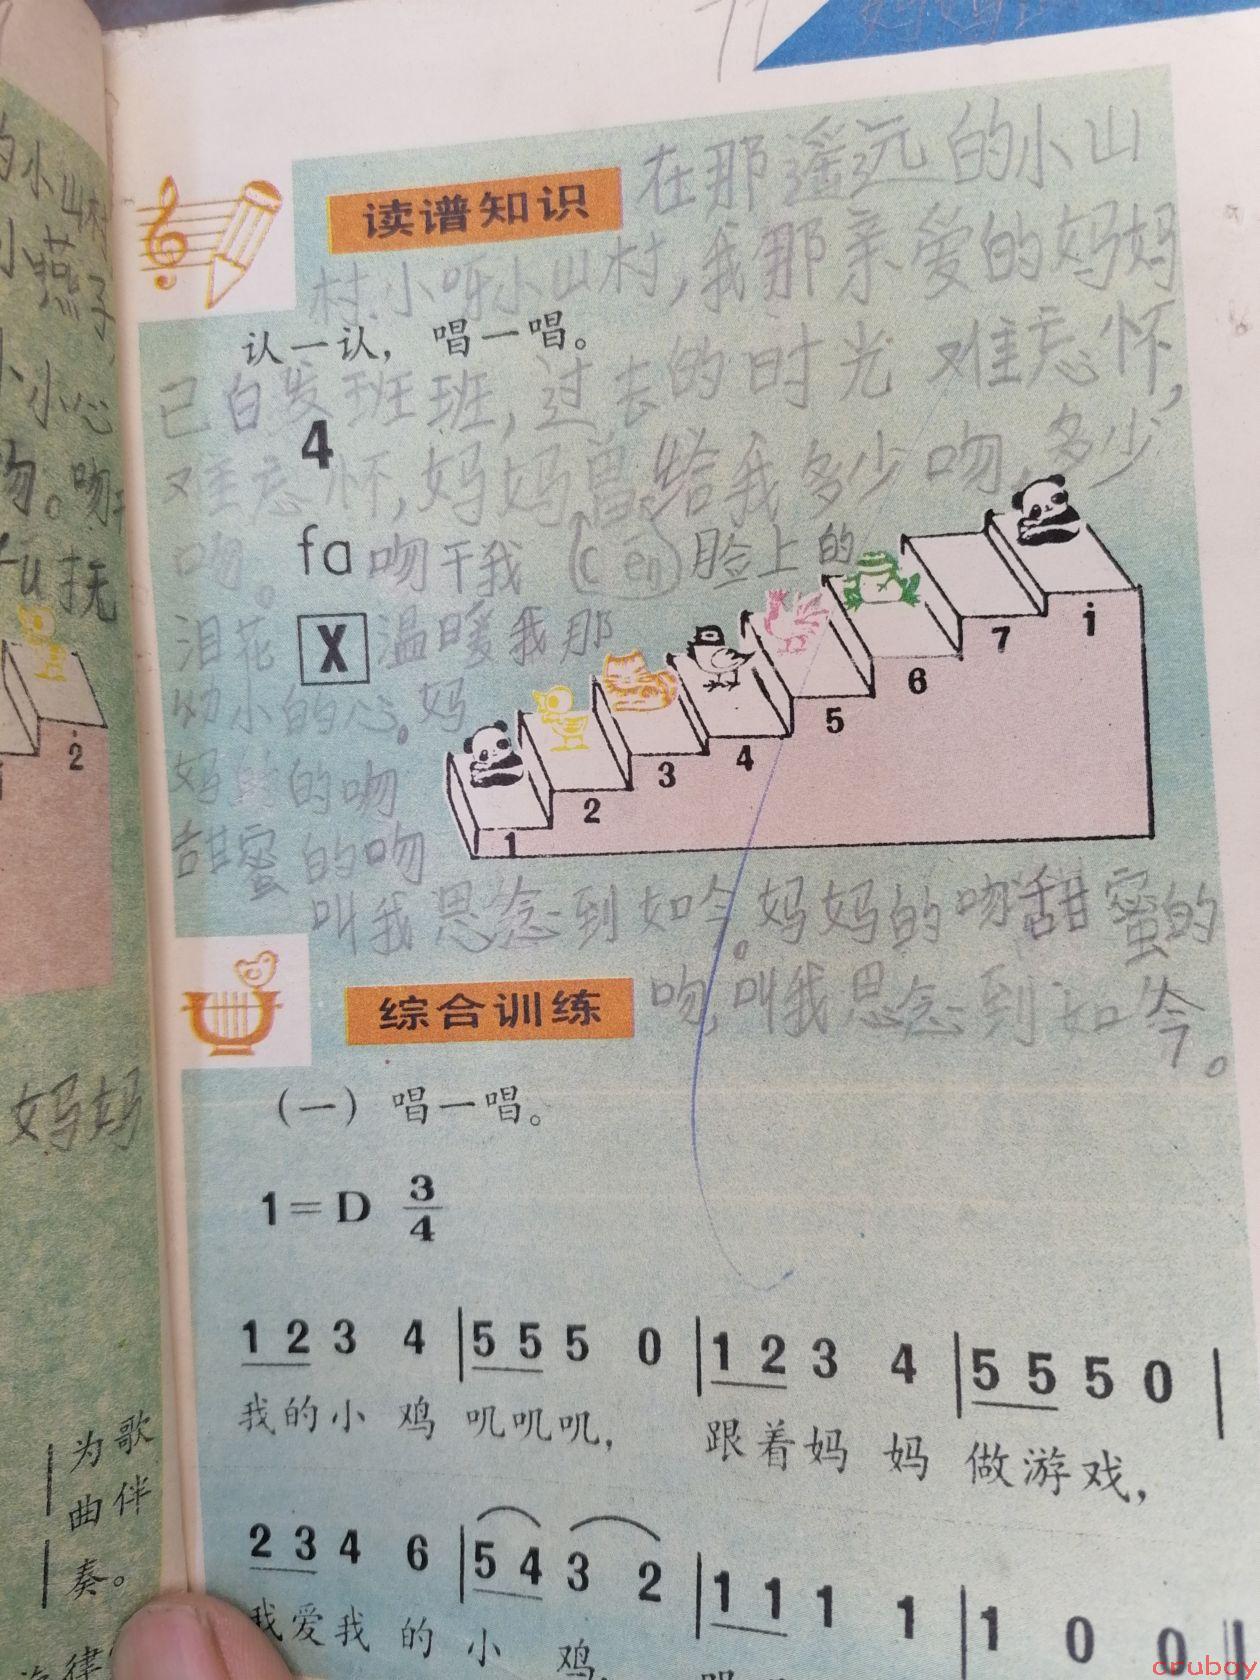 的小山村
小燕子
小小心
吻。吻干
fu 抚
2
妈妈
为歌
曲伴
奏。
律
在那遥远的小山
读谱知识
村,小呀小山村,我那亲爱的妈妈
认一认，唱一唱。
已白发班班,过去的时光难忘怀,
4
难忘怀,妈妈曾给我多少吻,多少
吻。
fa
吻干我(cén)脸上的
泪花
X
温暖我那
幼小的心。妈
妈的吻
甜蜜的吻
1 2 3 4 5 6 7 i
叫我思念到如今。妈妈的吻甜蜜的
综合训练
吻,叫我思念到如今。
(一) 唱一唱。
1=D 3/4
1 2 3 4 | 5 5 5 0 | 1 2 3 4 | 5 5 5 0 |
我的小 鸡 叽叽叽， 跟着妈 妈 做游戏，
2 3 4 6 | 5 4 3 2 | 1 1 1 1 | 1 0 0 ‖
我爱我 的 小 鸡，
cruboy